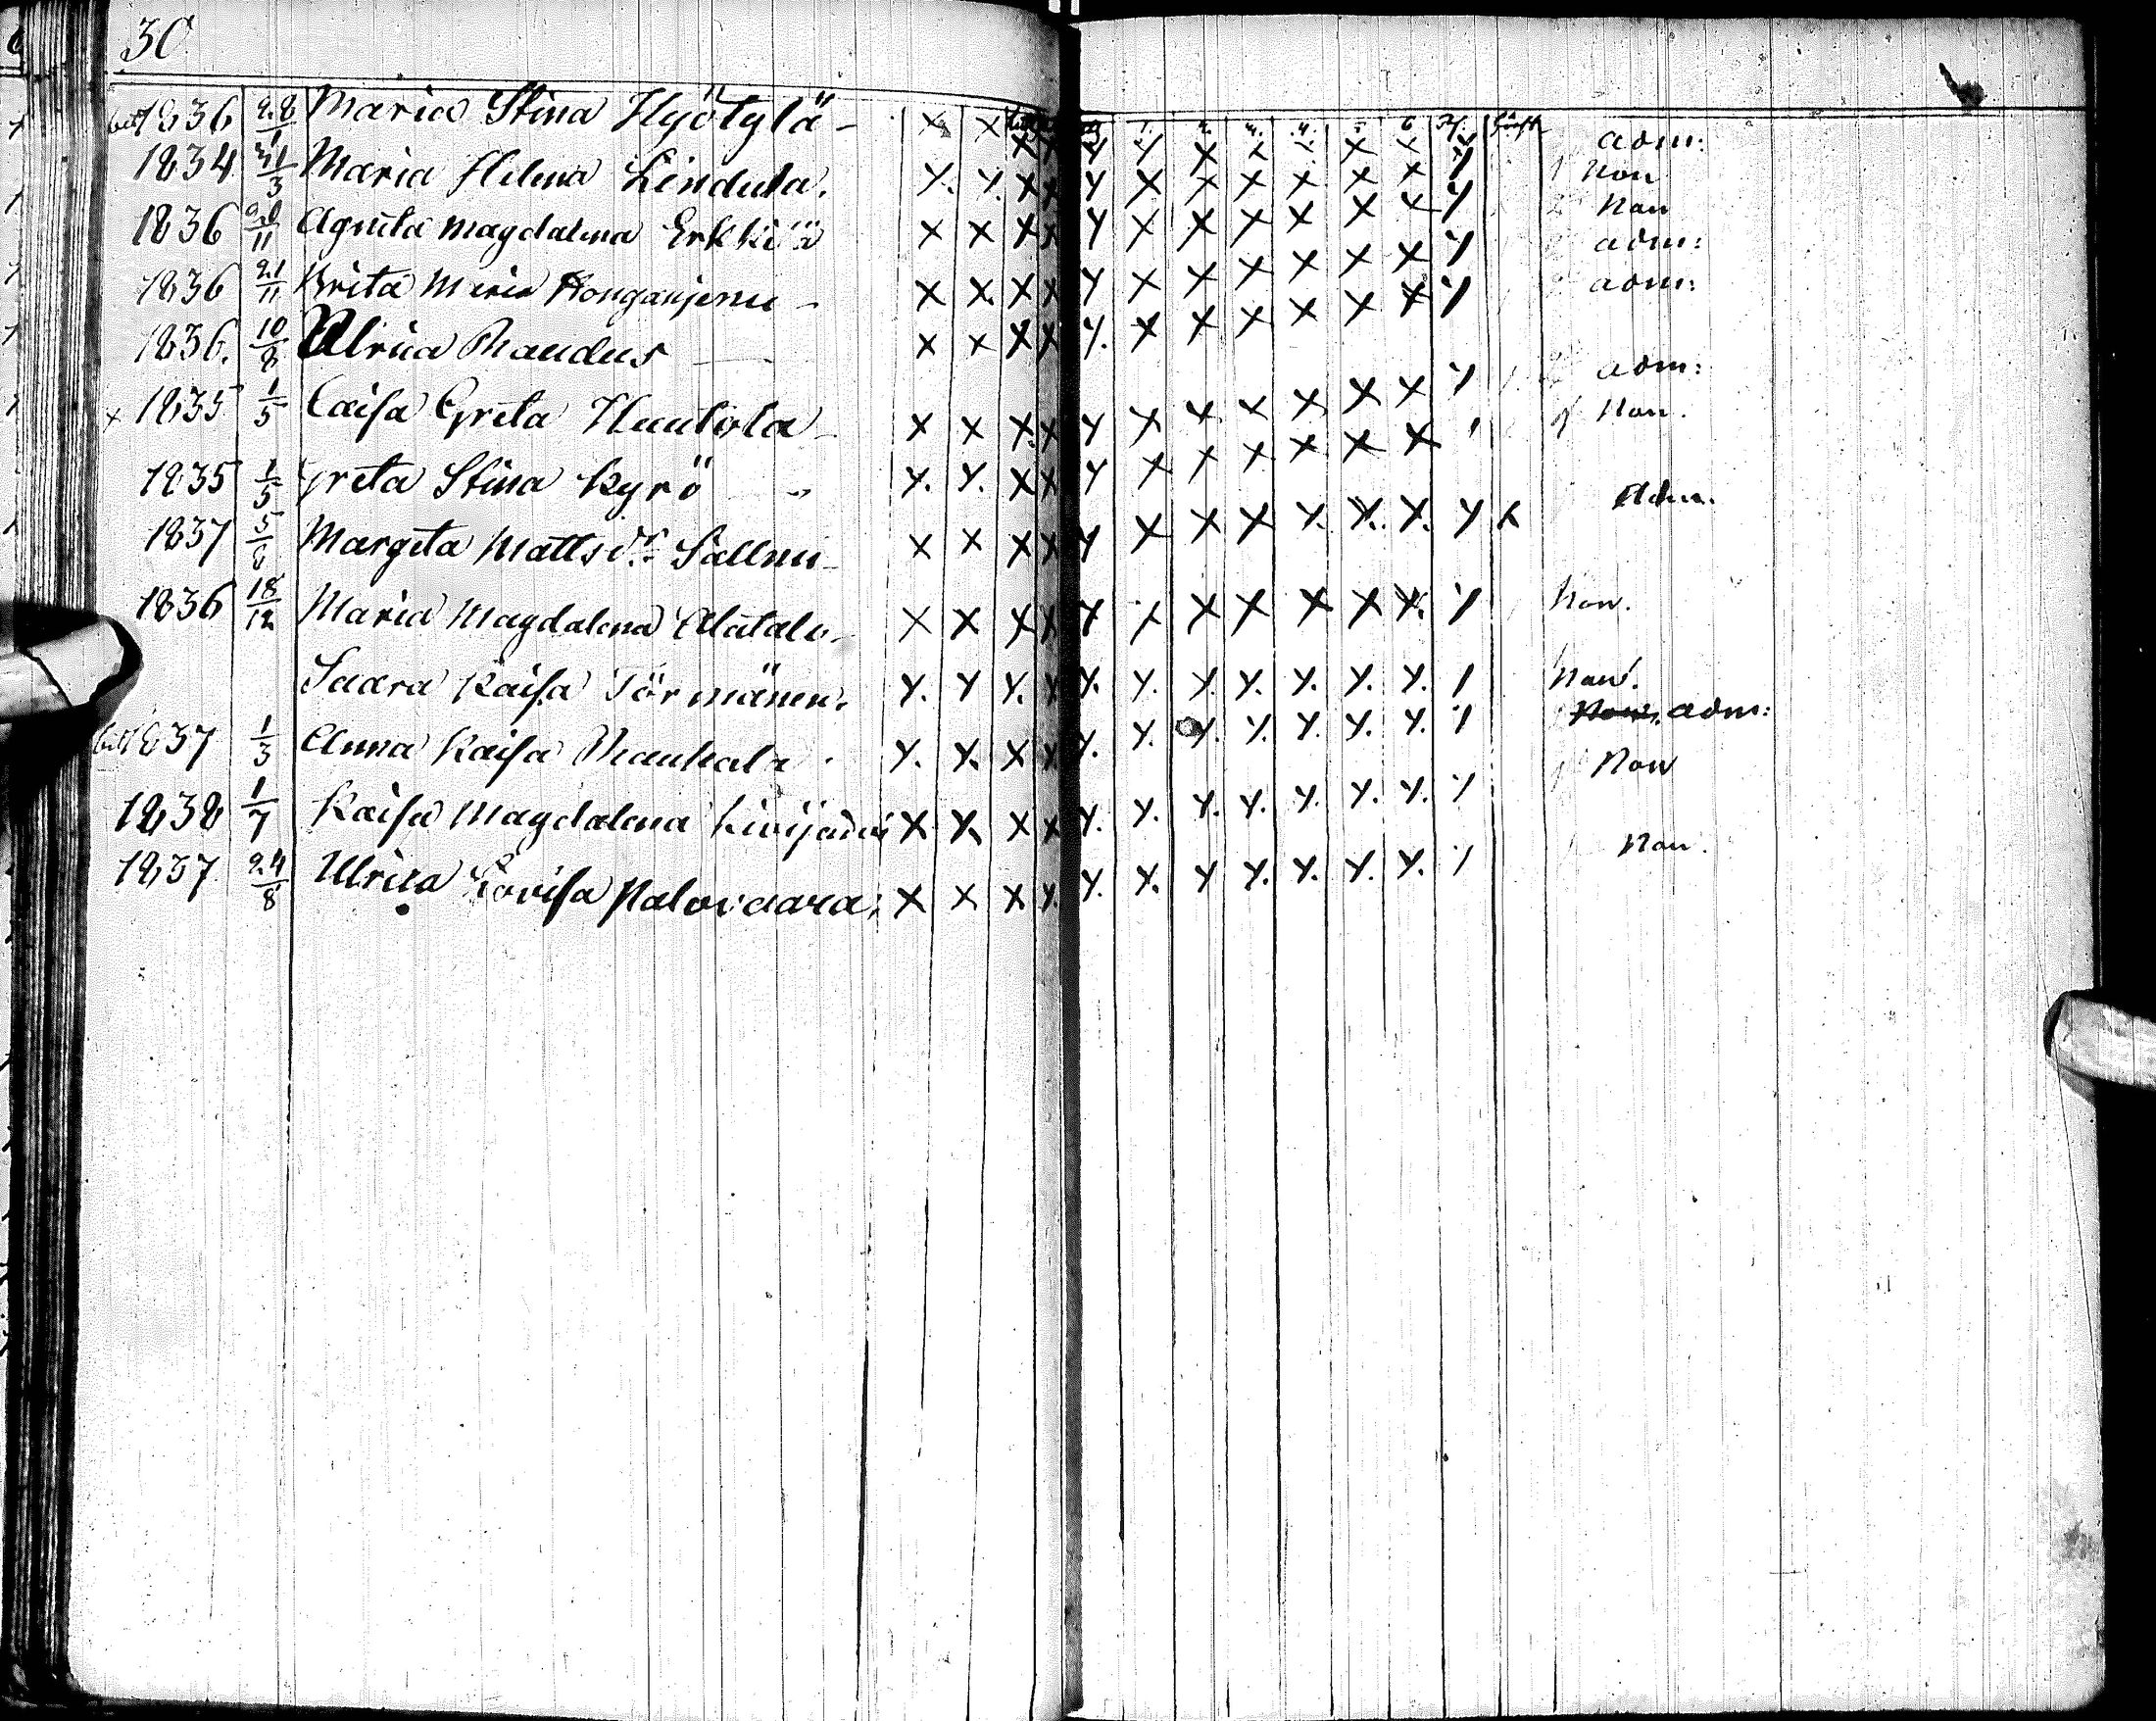 30
1836 28/1 Maria Stina Hyötylä - x x x x y y x x x x x y adm:
1834 31/3 Maria Helena Lindula. y. y. x x y x x x x x x y Non
1836 20/11 Agneta Magdalena Erkkilä x x x x y x x x x x x y Non
1836 21/11 Brita Maria Konganjemi - x x x x y x x x x x x y adm:
1836. 10/8 Ulrica Mandus x x x x y. x x x x x x y adm:
x 1835 1/5 Caisa Greta Huutola - x x x x y x x x x x x y adm:
1835 1/5 Greta Stina Kyrö y. y. x x y x x x x x x Non.
1837 5/8 Margeta Mattsdr Sallmi - x x x x y x x x y. y. y. y x Adm.
1836 18/12 Maria Magdalena Alatalo. x x x x x x x x x x x y Non.
Saara Kaisa Törmänen. y. y y. y y. y. y. y. y. y. y. Non.
1837 1/3 Anna Kaisa Mauhala. y. y. x x y. y. y. y. y. y. y. adm:
1838 1/7 Kaisa Magdalena Kivijärvi x x x x y. y. y. y. y. y. y. Non
1837 24/8 Ulrica Lovisa Palovaara. x x x y. y. y. y y. y. y. y. Non.